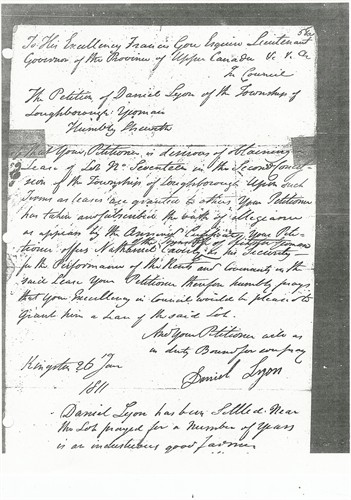 To His Excellency Francis Gore Esquire Lieutenant
Governor of the Province of Upper Canada &c &c &c
In Council
The Petition of Daniel Lyon of the Township of
Loughborough Yeoman
Humbly Sheweth
That Your Petitioner is desirous of obtaining a
Lease of Lot No Seventeen in the Second Conces-
sion of the Township of Loughborough Upon such
Terms as leases are granted to others Your Petitioner
has taken and subscribed the oath of allegiance
as appears by the Annexed Certificate, Your Peti-
tioner offers Nathaniel
of the Township of Yeoman
as his Security
for the Performance of the Rents and Covenants in the
said Lease Your Petitioner therefore humbly prays
that Your Excellency in Council would be pleased to
Grant him a Lease of the said Lot.
And Your Petitioner will as
in duty Bound for ever pray
Kingston 26 Jan
1811
Daniel Lyon
Daniel Lyon has been Settled Near
the Lot prayed for a Number of Years
is an industrious good farmer